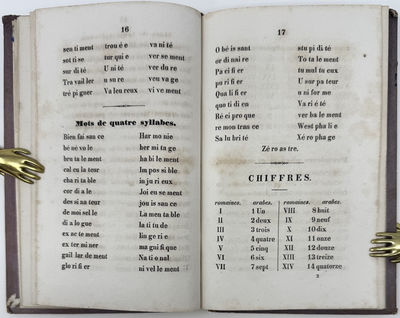 16
sen ti ment trou é e va ni té
sot ti se tur qui e ver se ment
sur di té U ni té ver du re
Tra vail ler u su re veu va ge
tré pi guer Va leu reux vi ve ment
Mots de quatre syllabes.
Bien fai san ce Har mo nie
bé né vo le her mi ta ge
bru ta le ment ha bi le ment
cal cu la teur Im pos si ble
cha ri ta ble in ju ri eux
cor di a le Joi eu se ment
des si na teur jou is san ce
de moi sel le La men ta ble
di a lo gue la ti tu de
ex ac te ment lin ge ri e
ex ter mi ner ma gni fi que
gail lar de ment Na ti o nal
glo ri fi er ni vel le ment
17
O bé is sant stu pi di té
or di nai re To ta le ment
Pa ci fi er tu mul tu eux
pu ri fi er U sur pa teur
Qua li fi er u ni for me
quo ti di en Va ri é té
Ré ci pro que ver ba le ment
re mon tran ce West pha li e
Sa lu bri té Xé ro pha ge
Zé ro as tre.
CHIFFRES.
romaines. arabes. romaines. arabes.
I 1 Un VIII 8 huit
II 2 deux IX 9 neuf
III 3 trois X 10 dix
IV 4 quatre XI 11 onze
V 5 cinq XII 12 douze
VI 6 six XIII 13 treize
VII 7 sept XIV 14 quatorze
2